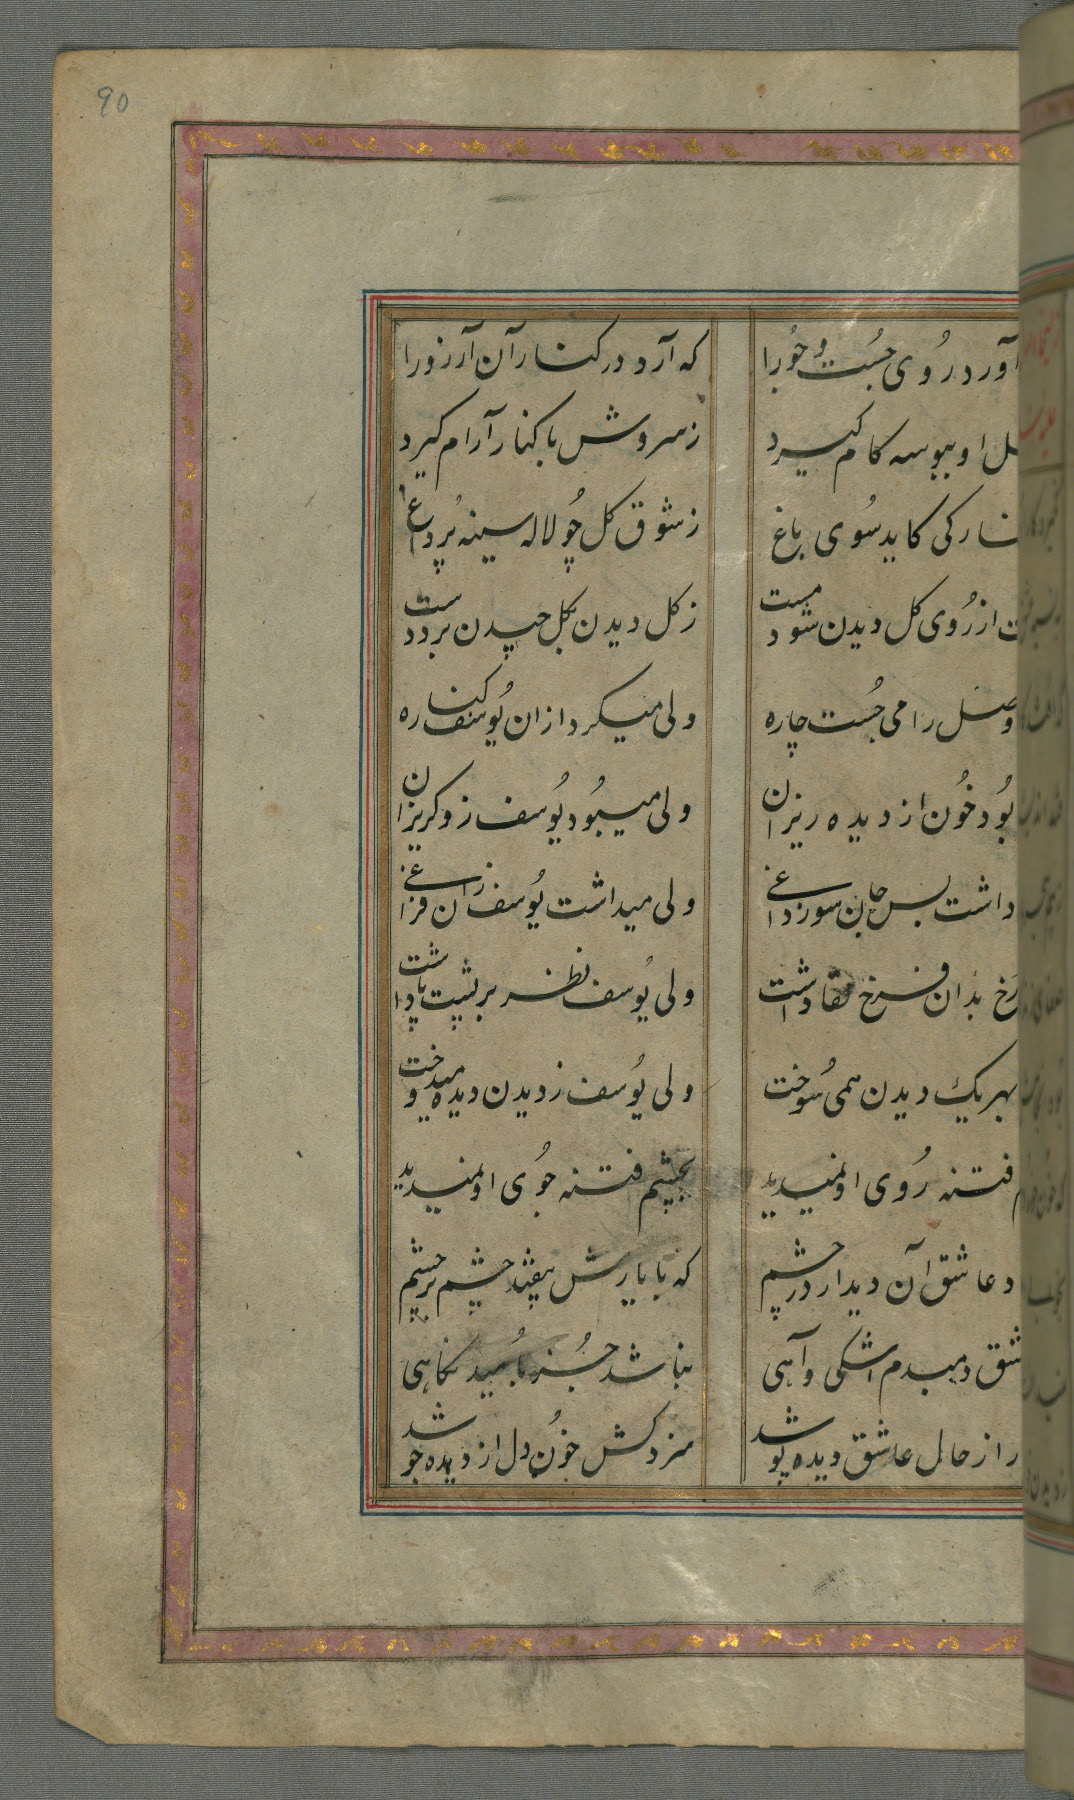 90
آورد در روی جست و جو را
که آرد در کنار آن آرزو را
ل او ببوسه کام کیرد
ز سروش با کنار آرام کیرد
کی کاید سوی باغ
ز شوق کل چو لاله سینه پر داغ
از روی کل دیدن شود مست
ز کل دیدن بکل چیدن برد دست
وصل را می جست چاره
ولی میکرد ازان یوسف کناره
بود خون از دیده ریزان
ولی میبود یوسف زو کریزان
داشت بس جان سوز داغی
ولی میداشت یوسف زان فراغی
رخ بدان فرخ لقا داشت
ولی یوسف نظر بر پشت پا داشت
بهر یک دیدن همی سوخت
ولی یوسف ز دیدن دیده میدوخت
فتنه روی او نمیدید
بچشم فتنه جوی او نمیدید
د عاشق آن دیدار در چشم
که با یارش نیفتد چشم بر چشم
دمبدم اشکی و آهی
نباشد جز بامید نکاهی
را از حال عاشق دیده پوشد
سزد کش خون دل از دیده جوشد